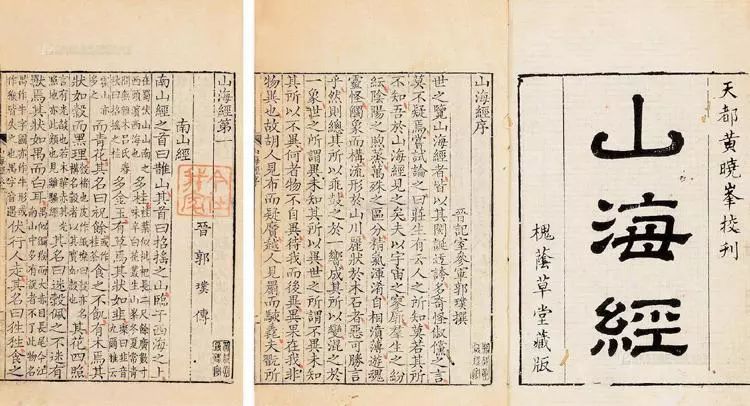 天都黃曉峯校刊
山海經
槐蔭草堂藏版
山海經序
晉記室參軍郭璞撰
世之覽山海經者皆以其閎誕迂誇多奇怪俶儻之言
莫不疑焉嘗試論之曰莊生有云人之所知莫若其所
不知吾於山海經見之矣夫以宇宙之寥廓羣生之紛
紜陰陽之煦蒸萬殊之區分精氣渾淆自相濆薄遊魂
靈怪觸象而構流形於山川麗狀於木石者惡可勝言
乎然則總其所以乖鼓之於一響成其所以變混之於
一象世之所謂異未知其所以異世之所謂不異未知
其所以不異何者物不自異待我而後異異果在我非
物異也故胡人見布而疑黂越人見罽而駭毳夫翫所
山海經第一
晉郭璞傳
南山經
南山經之首曰䧿山其首曰招搖之山臨于西海之上
在蜀伏山山南之西頭濱西海也多桂桂葉似枇杷長二尺餘廣數寸味辛白花叢生山峯冬夏常青
間無雜木呂氏春秋曰招搖之桂多金玉有草焉其狀如韭
而青花其名曰祝餘或作桂荼食之不飢有木焉其
狀如榖而黑理
其花四照
其名曰迷榖佩之不迷有
獸焉其狀如禺而白耳
伏行人走其名曰狌狌食之